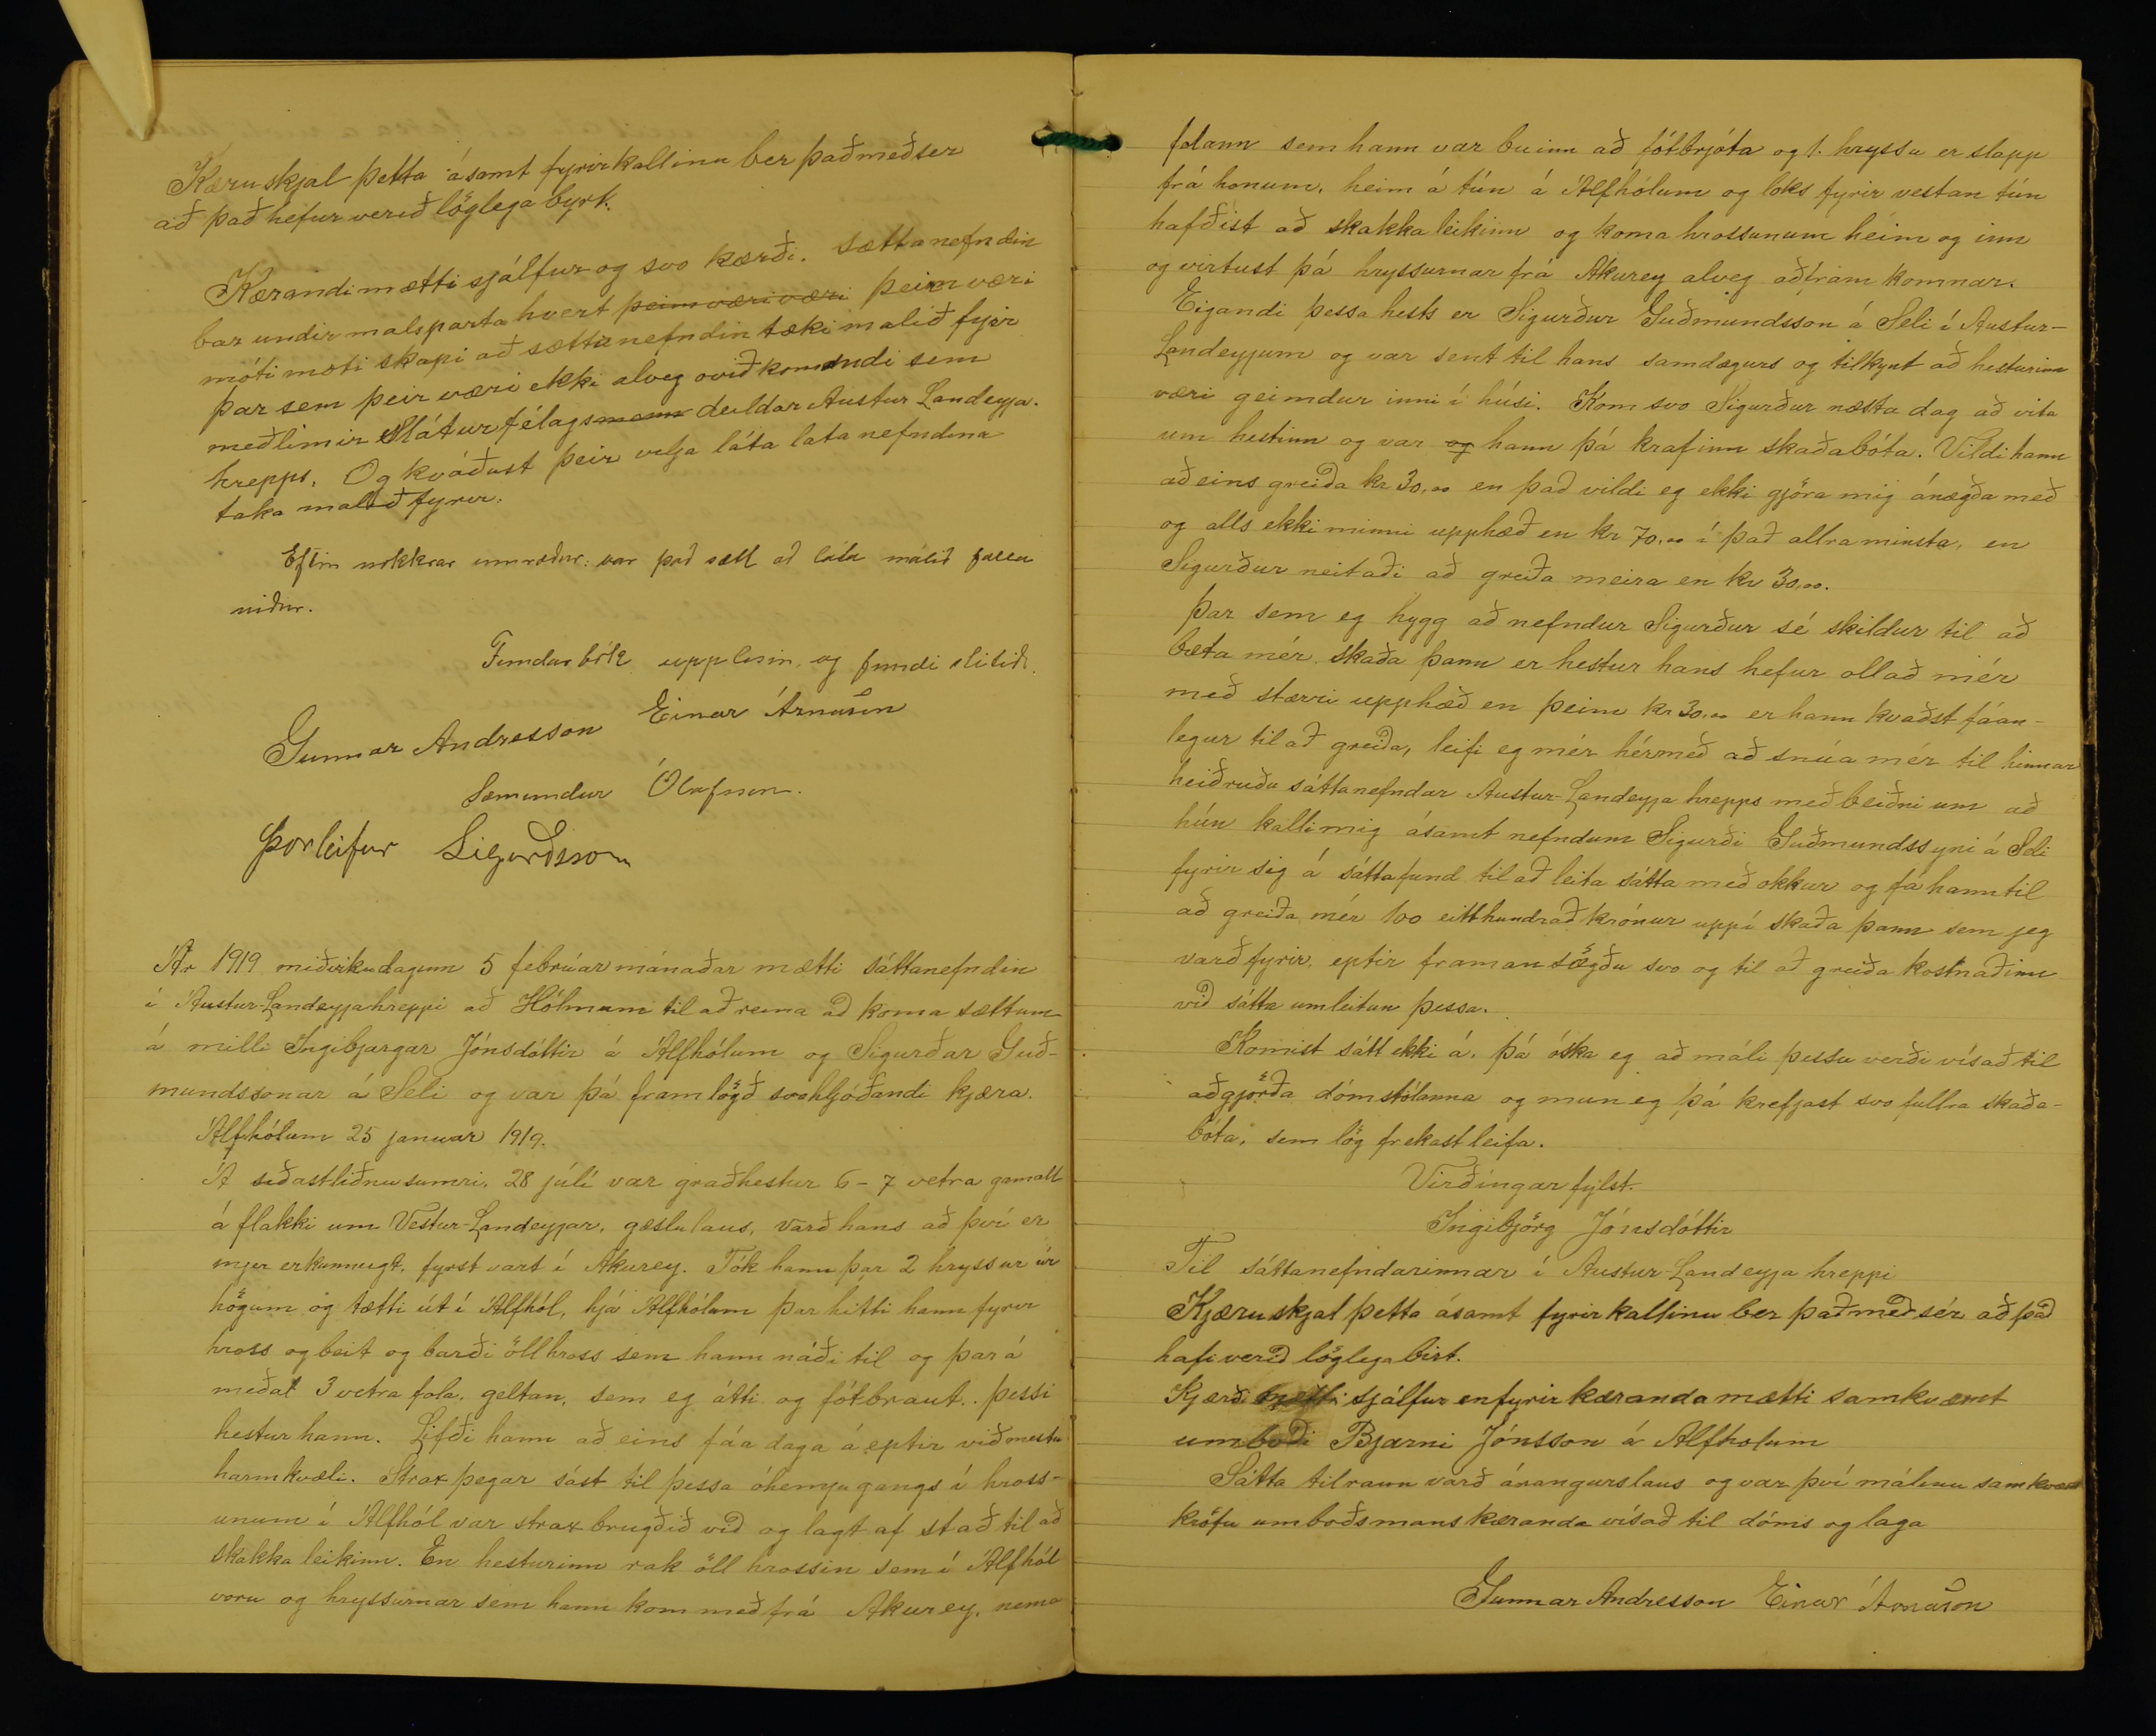 Kæruskjal þetta ásamt fyrirkallinu ber það með ser
að það hefur verið löglega byrt.
Kærandi mætti sjálfur og svo kærði. Sættanefndin
bar undir malsparta hvert þeim væri væri þeim væri
móti moti skapi að sættanefndin tæki malið fyrir
þar sem þeir væri ekki alveg oviðkomandi sem
meðlimir Sláturfélagsmann deildar Austur Landeyja
hrepps. Og kváðust þeir velja láta lata nefndina
taka malið fyrir.
Eftir nokkrar umræður: var það sætt að láta málið falla
niður.
Fundarbók upplesin og fundi slitið.
Gunnar Andresson Einar Árnason
Sæmundur Ólafsson.
Þorleifur Sigurðsson
Ár 1919 miðvikudaginn 5 febrúar mánaðar mætti sáttanefndin
í Austur-Landeyjahreppi að Hólmum til að reina að koma sættum
á milli Ingibjargar Jónsdóttir á Álfhólum og Sigurðar Guð-
mundssonar á Seli og var þá framlögð svohljóðandi kjæra.
Álfhólum 25 januar 1919.
Á siðastliðnu sumri, 28 júlí var graðhestur 6-7 vetra gamall
á flakki um Vestur-Landeyjar, gæslulaus, varð hans að því er
mjer er kunnugt, fyrst vart í Akurey. Tók hann þar 2 hryssur úr
högum og tætti út í Álfhól, hjá Álfhólum þar hitti hann fyrir
hross og beit og barði öll hross sem hann náði til og þar á
meðal 3 vetra fola, geltan, sem eg átti og fótbraut.. þessi
hestur hann. Lifði hann að eins fáa daga á eptir við mestu
harmkvæli. Strax þegar sást til þessa óhemju gangs í hross-
unum í Álfhól var strax brugðið við og lagt af stað til að
skakka leikinn. En hesturinn rak öll hrossin sem í Álfhól
voru og hryssurnar sem hann kom með frá Akurey, nema
folann sem hann var buinn að fótbrjóta og 1. hryssu er slapp
frá honum, heim á tún á Álfhólum og loks fyrir vestan tún
hafðist að skakka leikinn og koma hrossunum heim og inn
og virtust þá hryssurnar frá Akurey alveg aðfram komnar.
Eigandi þessa hests er Sigurður Guðmundsson á Seli í Austur-
Landeyjum og var sent til hans samdægurs og tilkynt að hesturinn
væri geimdur inni í húsi. Kom svo Sigurður næsta dag að vita
um hestinn og var og hann þá krafinn skaðabóta. Vildi hann
að eins greiða kr 30,00 en það vildi eg ekki gjöra mig ánægða með
og alls ekki minni upphæð en kr 70,00 í það allra minsta, en
Sigurður neitaði að greiða meira en kr 30,00.
Þar sem eg hygg að nefndur Sigurður sé skildur til að
bæta mér skaða þann er hestur hans hefur ollað mér
með stærri upphæð en þeim kr 30,00 er hann kvaðst fáan-
legur til að greiða, leifi eg mér hérmeð að snúa mér til hinnar
heiðruðu sáttanefndar Austur-Landeyja hrepps með beiðni um að
hún kalli mig ásamt nefndum Sigurði Guðmundssyni á Seli
fyrir sig á sáttafund til að leita sátta með okkur og fá hann til
að greiða mér 100 eitthundrað krónur uppí skaða þann sem jeg
varð fyrir, eptir framansögðu svo og til að greiða kostnaðinn
við sátta umleitun þessa.
Komist sátt ekki á, þá óska eg að máli þessu verði vísað til
aðgjörða dómstólanna og mun eg þá krefjast svo fullra skaða-
bóta, sem lög frekast leifa.
Virðingarfylst.
Ingibjörg Jónsdóttir
Til sáttanefndarinnar í Austur-Landeyja hreppi
Kjæruskjal þetta ásamt fyrirkallinu ber það með sér að það
hafi verið löglega birt.
Kjærði mætti sjálfur en fyrir kæranda mætti samkvæmt
umboði Bjarni Jónsson á Alfholum
Sátta tilraun varð árangurslaus og var því málinu samkvæmt
kröfu umboðsmans kæranda vísað til dóms og laga
Gunnar Andresson Einar Árnason